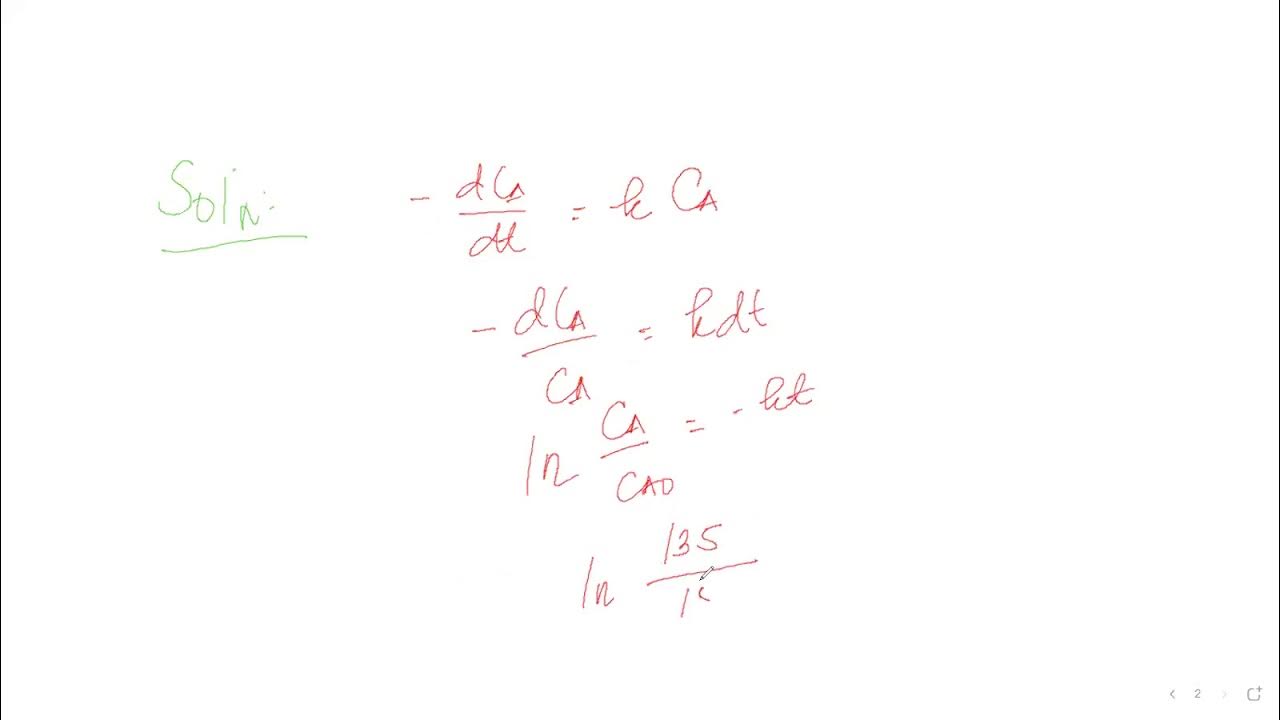 Soln.
- dCA/dt = k CA
- dCA/CA = kdt
ln CA/CAO = - kt
ln 135/1
2